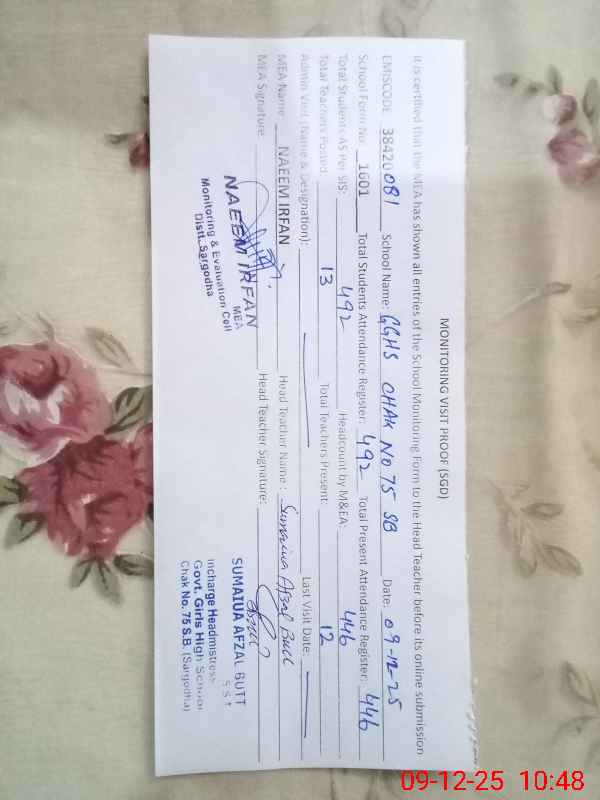 MONITORING VISIT PROOF (SGD)
It is certified that the MEA has shown all entries of the School Monitoring Form to the Head Teacher before its online submission
EMISCODE 38420081 School Name: GGHS CHAK NO 75 SB Date: 09-12-25
School Form No: 1601 Total Students Attendance Register: 492 Total Present Attendance Register: 446
Total Students AS Per SIS: 492 Headcount by M&EA: 446
Total Teachers Posted: 13 Total Teachers Present: 12
Admin Visit (Name & Designation): Last Visit Date:
MEA Name: NAEEM IRFAN Head Teacher Name: Sumaiua Afzal Butt
MEA Signature: Head Teacher Signature:
NAEEM IRFAN
MEA
Monitoring & Evaluation Cell
Distt. Sargodha
SUMAIUA AFZAL BUTT
S S T
Incharge Headmistress
Govt. Girls High School
Chak No. 75 S.B. (Sargodha)
09-12-25 10:48